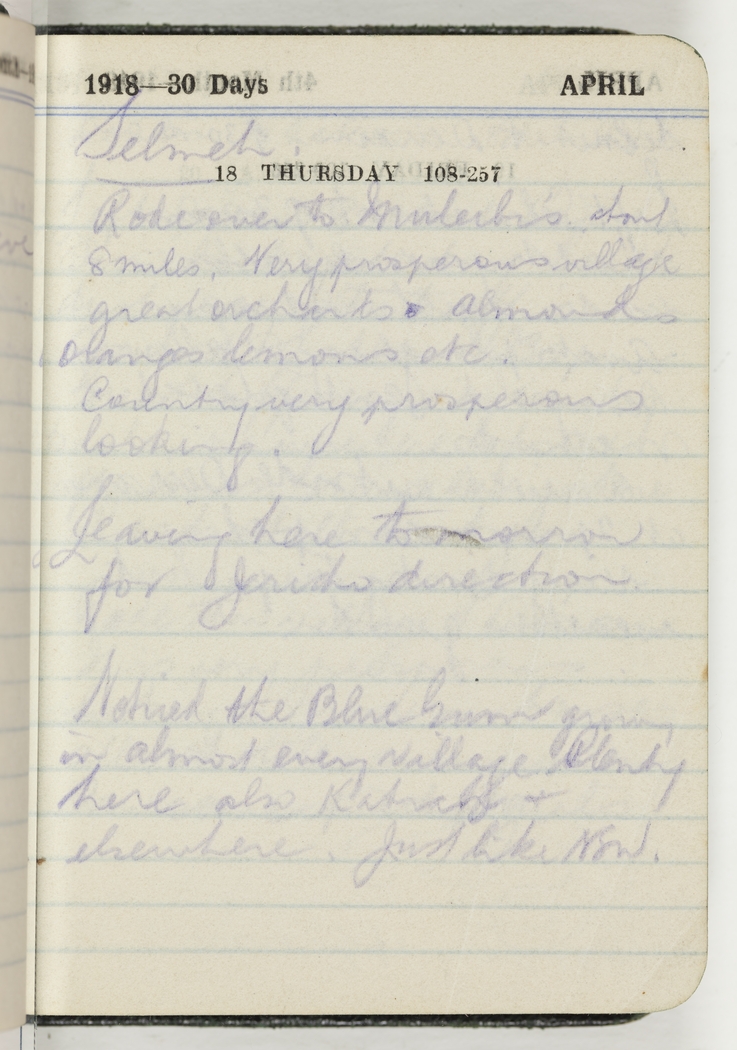 1918—30 Days APRIL
Selmeh.
18 THURSDAY 108-257
Rode over to Mulebbis about
8 miles. Very prosperous village
great orchards & almonds
oranges lemons etc.
Country very prosperous
looking.
Leaving here to morrow
for Jericho direction.
Noticed the Blue Gum growing
in almost every village. Plenty
here also Katrah &
elsewhere. Just like NSW.